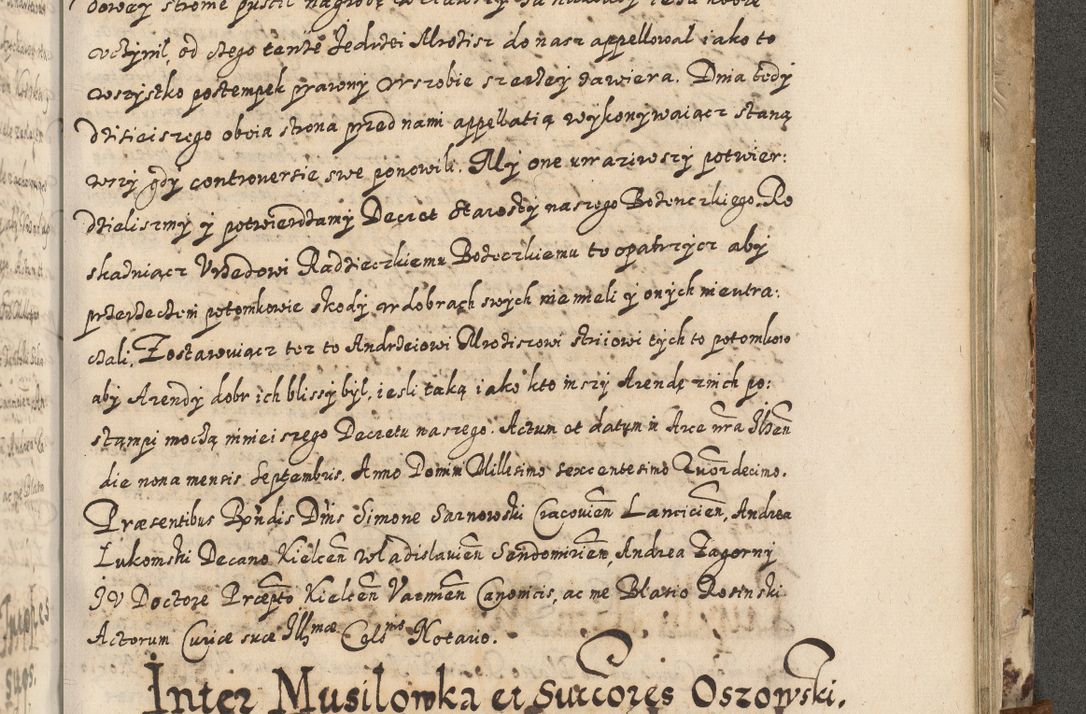 uczynił, od czego tenże Jedrzei Mrotisz do nasz appellował iako to
wszystko postempek prawny wszobie szerzey zawiera. Dnia tedy
dzisieiszego oboia strona przed nami appellatią wykonywaiącz staną
wszy gdy controversie swe ponowili. My one uwaziwszy potwier:
dzieliszmy y potwierdzamy Decret Starosty naszego Bożenczkiego. Ro
skazuiącz Urzedowi Radzieczkiemu Bożeczkiemu to opatrzycz aby
przerzeczeni potomkowie skody w dobrach swych nie mieli y onych nie utra:
czali, Zostawuiącz tez to Andrzeiowi Mrotiszowi striiowi tych to potomkow
aby Arendy dobr ich bliszy był, iesli taką iako kto inszy Arendę znich po:
stampi mocżą ninieiszego Decretu naszego. Actum et datum in Arce nra Ilzen
die nona mensis Septembris. Anno Domini Millesimo sexcentesimo Quordecimo.
Præsentibus Rndis Dnis Simone Sarnowski Cracovien Lancicien, Andrea
Łukomski Decano Kielcen Wladislavien Sendomirien, Andrea Zagorny
JV Doctore Prcepto Kielcen Varmien Canonicis, ac me Blasio Rosinski
Actorum Curiæ suæ Illmæ Celsnis Notario.
Inter Musilowka et Succores Oszowski.